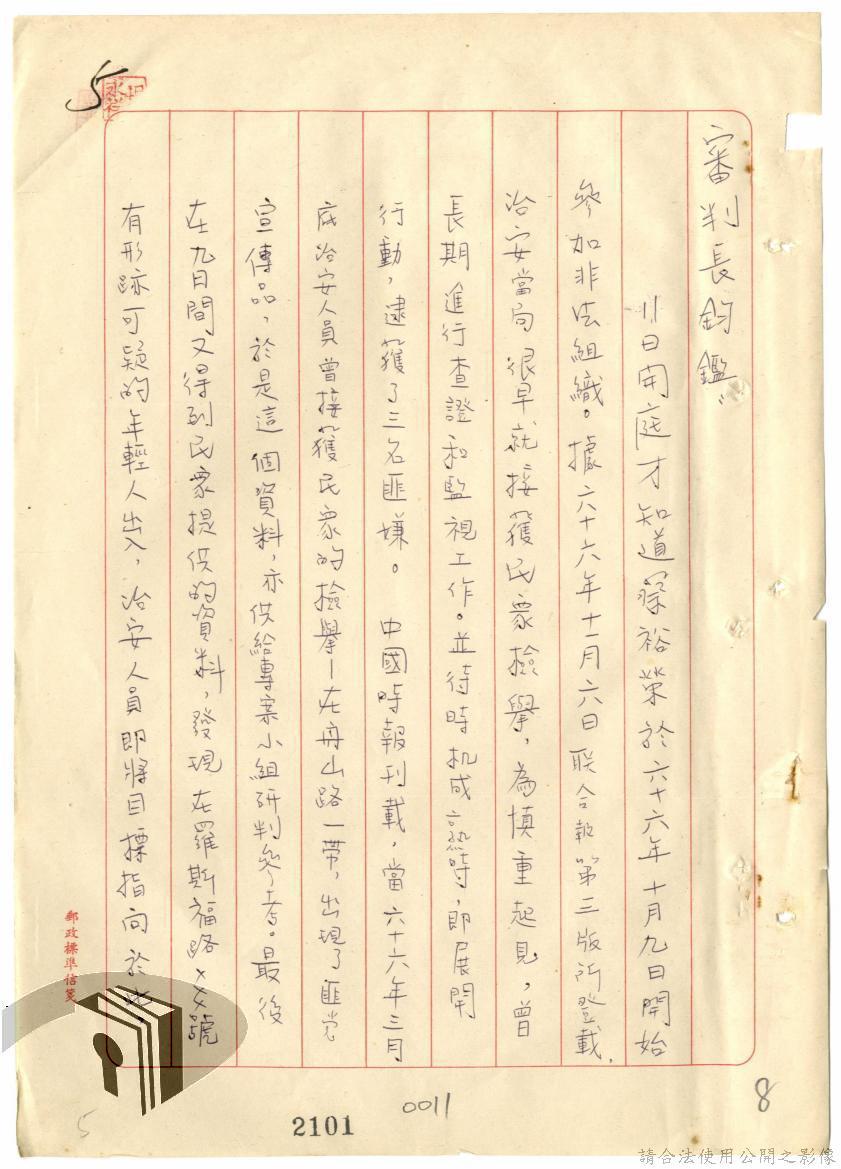 審判長鈞鑑：
11日開庭才知道蔡裕榮於六十六年十月九日開始
參加非法組織。據六十六年十一月六日聯合報第三版所登載，
治安當局很早就接獲民眾檢舉，為慎重起見，曾
長期進行查證和監視工作。並待時机成熟時，即展開
行動，逮獲了三名匪嫌。 中國時報刊載，當六十六年三月
底治安人員曾接獲民眾的檢舉—在舟山路一帶，出現了匪党
宣傳品，於是這個資料，亦供給專案小組研判參考。最後
在九日間又得到民眾提供的資料，發現在羅斯福路××號
有形跡可疑的年輕人出入，治安人員即將目標指向於此，
郵政標準信箋
5
2101
0011
8
5
請合法使用公開之影像